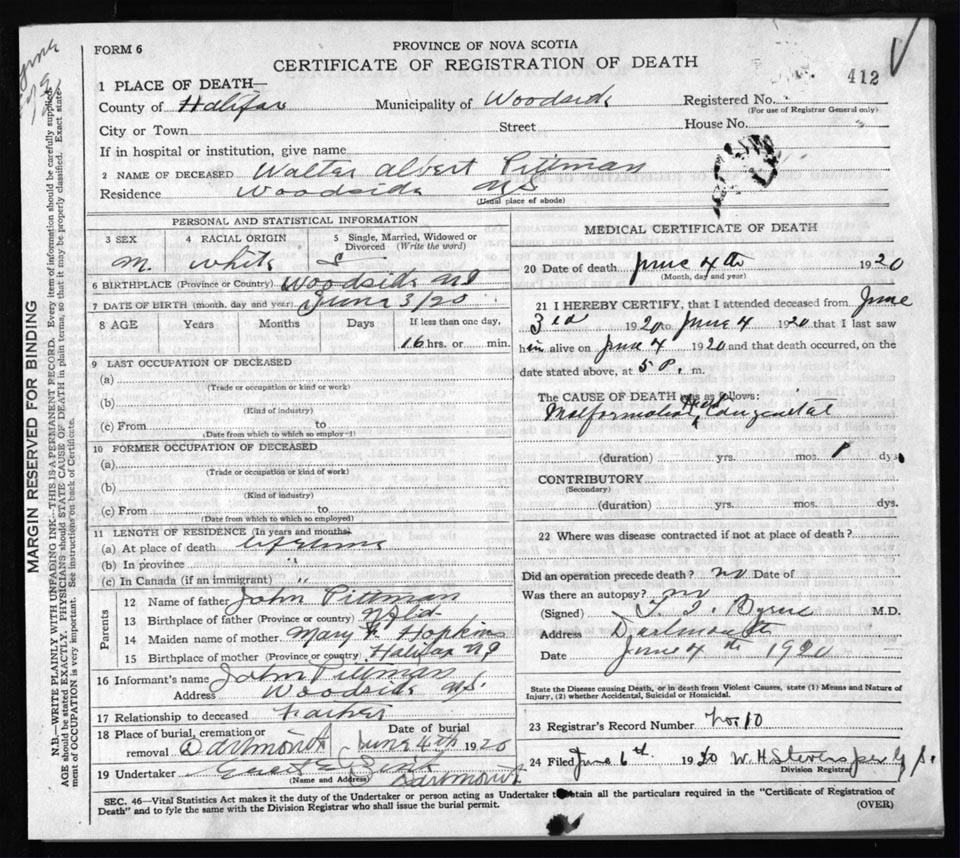 FORM 6
PROVINCE OF NOVA SCOTIA
CERTIFICATE OF REGISTRATION OF DEATH
412
1 PLACE OF DEATH—
County of Halifax Municipality of Woodside Registered No.
(For use of Registrar General only)
City or Town Street House No.
If in hospital or institution, give name
2 NAME OF DECEASED Walter Albert Pittman
Residence Woodside NS
(Usual place of abode)
PERSONAL AND STATISTICAL INFORMATION
3 SEX 4 RACIAL ORIGIN 5 Single, Married, Widowed or Divorced (Write the word)
M. White S
6 BIRTHPLACE (Province or Country) Woodside NS
7 DATE OF BIRTH (month, day and year) June 3/20
8 AGE Years Months Days If less than one day,
16 hrs. or min.
9 LAST OCCUPATION OF DECEASED
(a)
(Trade or occupation or kind or work)
(b)
(Kind of industry)
(c) From to
(Date from which to which so employ-1)
10 FORMER OCCUPATION OF DECEASED
(a)
(Trade or occupation or kind of work)
(b)
(Kind of industry)
(c) From to
(Date from which to which so employed)
11 LENGTH OF RESIDENCE (In years and months)
(a) At place of death lifetime
(b) In province "
(c) In Canada (if an immigrant) "
Parents
12 Name of father John Pittman
13 Birthplace of father (Province or country) Nfld
14 Maiden name of mother Mary F. Hopkins
15 Birthplace of mother (Province or country) Halifax NS
16 Informant's name John Pittman
Address Woodside NS
17 Relationship to deceased Father
18 Place of burial, cremation or removal Dartmouth Date of burial June 4th 1920
19 Undertaker Dartmouth
(Name and Address)
MEDICAL CERTIFICATE OF DEATH
20 Date of death June 4th 1920
(Month, day and year)
21 I HEREBY CERTIFY, that I attended deceased from June
3rd 1920 to June 4 1920 that I last saw
him alive on June 4 1920 and that death occurred, on the
date stated above, at 5 P. m.
The CAUSE OF DEATH was as follows:
Malformation Congenital
(duration) yrs. mos. 1 dys.
CONTRIBUTORY
(Secondary)
(duration) yrs. mos. dys.
22 Where was disease contracted if not at place of death?
Did an operation precede death? no Date of
Was there an autopsy? no
(Signed) Byrne M.D.
Address Dartmouth
Date June 4th 1920
State the Disease causing Death, or in death from Violent Causes, state (1) Means and Nature of
Injury, (2) whether Accidental, Suicidal or Homicidal.
23 Registrar's Record Number No 10
24 Filed June 6th 1920 W. H.
Division Registrar
SEC. 46—Vital Statistics Act makes it the duty of the Undertaker or person acting as Undertaker to obtain all the particulars required in the "Certificate of Registration of
Death" and to fyle the same with the Division Registrar who shall issue the burial permit.
(OVER)
MARGIN RESERVED FOR BINDING
N.B.—WRITE PLAINLY WITH UNFADING INK—THIS IS A PERMANENT RECORD. Every item of information should be carefully supplied.
AGE should be stated EXACTLY. PHYSICIANS should STATE CAUSE OF DEATH in plain terms, so that it may be properly classified. Exact state-
ment of OCCUPATION is very important. See instructions on back of Certificate.